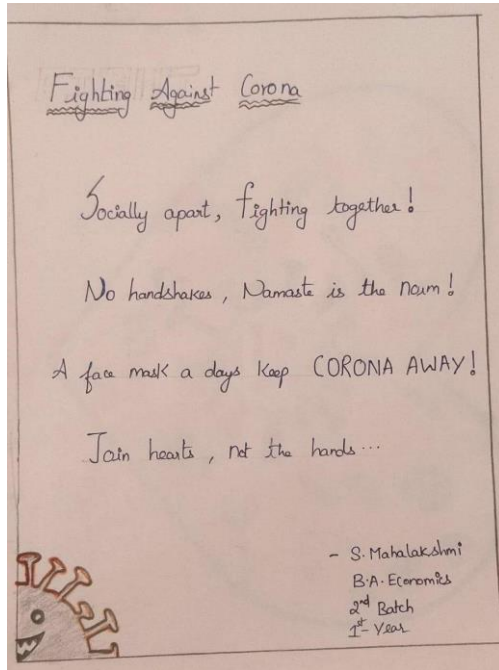 Fighting Against Corona
Socially apart, fighting together!
No handshakes, Namaste is the norm!
A face mask a days keep CORONA AWAY!
Join hearts, not the hands...
- S. Mahalakshmi
B.A. Economics
2nd Batch
1st - Year